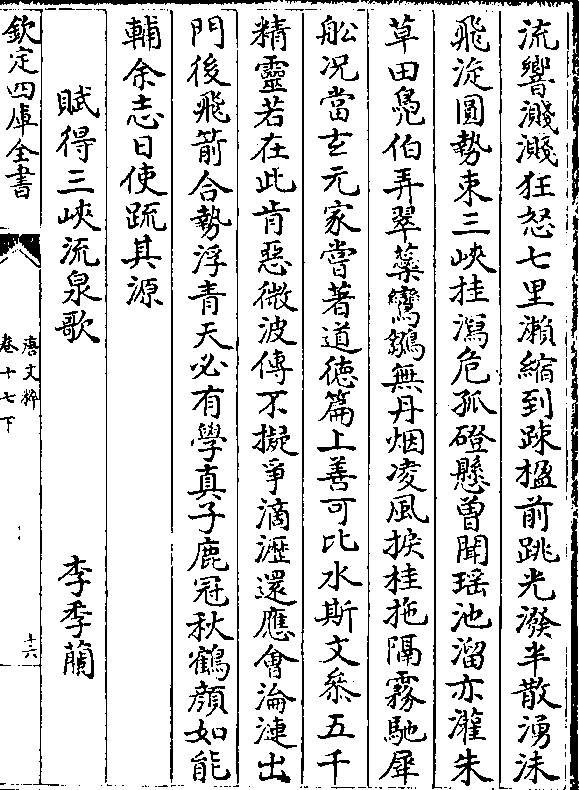 流響濺濺狂怒七里瀨縮到疎楹前跳光潑半散湧沫
飛淀圓勢束三峽挂瀉危孤磴懸曾聞瑶池溜亦灌朱
草田鳧伯弄翠蘂鸞鶵無丹烟凌風捩桂拖隔霧馳犀
舩况當𤣥元家嘗著道徳篇上善可比水斯文叅五千
精靈若在此肯惡微波傳不擬爭滴瀝還應會淪漣出
門後飛箭合勢浮青天必有學真子鹿冠秋鶴顔如能
輔余志日使䟽其源
賦得三峽流泉歌 李季蘭
欽定四庫全書
唐文粹
卷十七下
十六